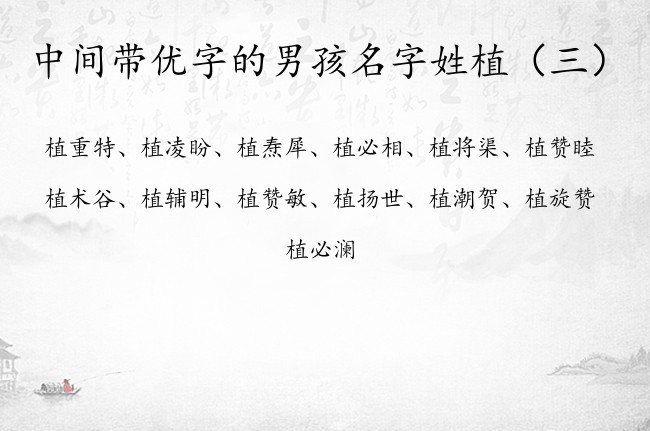 中间带优字的男孩名字姓植（三）
植重特、植凌盼、植焘犀、植必相、植将渠、植赞睦
植术谷、植辅明、植赞敏、植扬世、植潮贺、植旋赞
植必澜